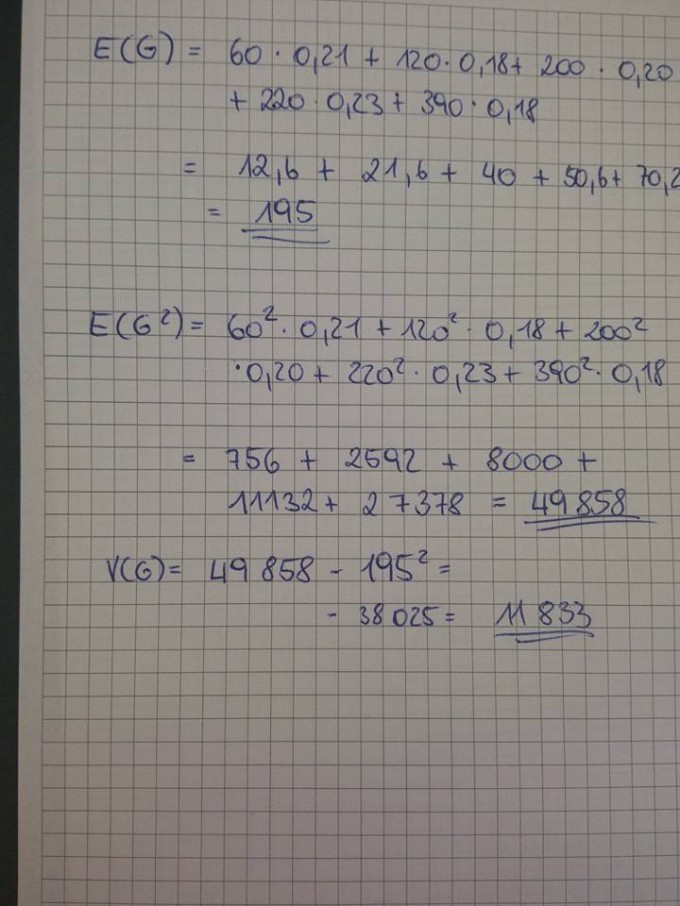 E(G) = 60 · 0,21 + 120 · 0,18 + 200 · 0,20
+ 220 · 0,23 + 390 · 0,18
= 12,6 + 21,6 + 40 + 50,6 + 70,2
= 195
E(G²) = 60² · 0,21 + 120² · 0,18 + 200²
· 0,20 + 220² · 0,23 + 390² · 0,18
= 756 + 2592 + 8000 +
11132 + 27378 = 49858
V(G) = 49858 - 195² =
- 38025 = 11833